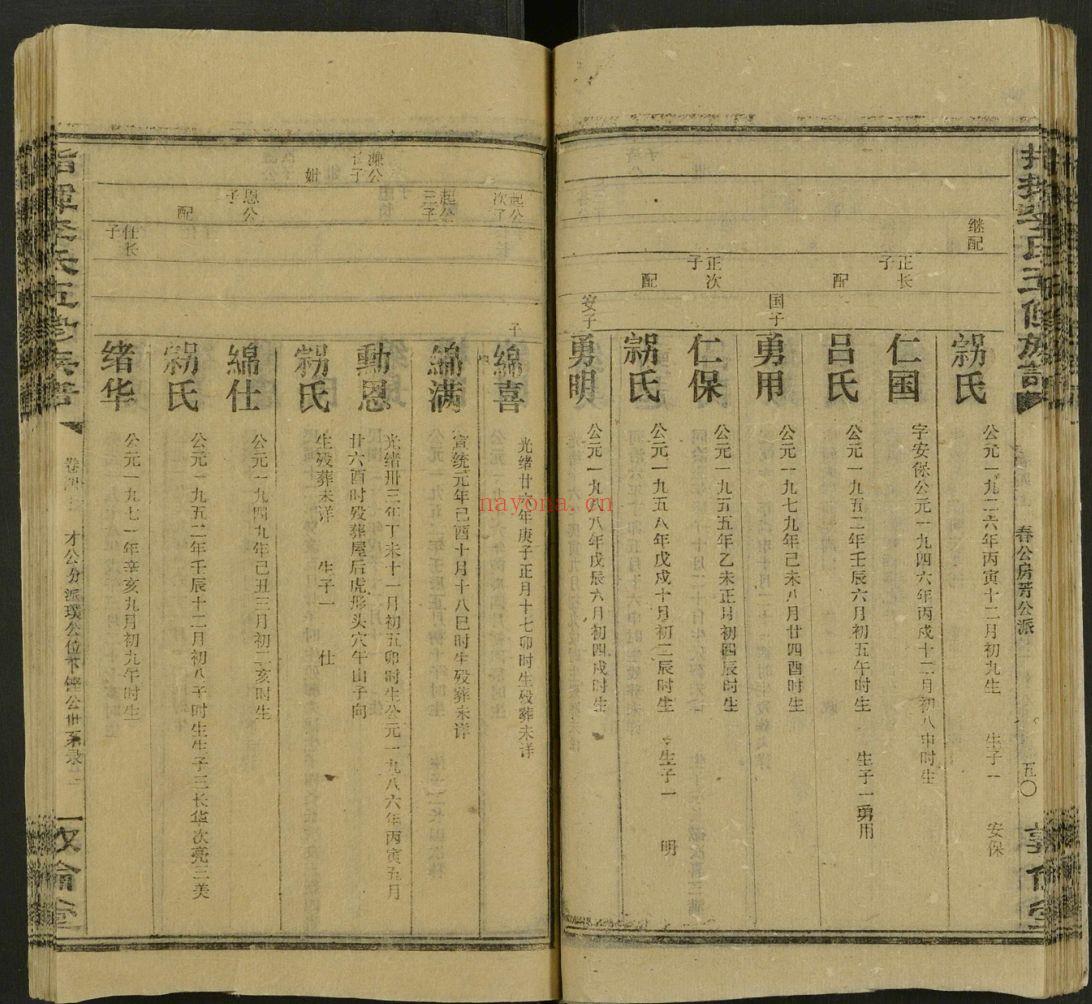 春公房芳公派
五〇
继配
粥氏
公元一九二六年丙寅十二月初九生 生子一 安保
正长子
仁国
字安保公元一九四六年丙戍十二月初八申时生
配
吕氏
公元一九五二年壬辰六月初五午时生 生子一勇用
国子
勇用
公元一九七九年己未八月廿四酉时生
正次子
仁保
公元一九五五年乙未正月初四辰时生
配
粥氏
公元一九五八年戊戍十月初二辰时生 生子一 明
安子
勇明
公元一九八八年戊辰六月初四戍时生
起公次子
綿喜
光绪廿六年庚子正月十七卯时生殁葬未详
起公三子
綿满
宣统元年己酉十月十八巳时生殁葬未详
濂公长子
動恩
光绪卅三年丁未十一月初五卯时生公元一九八六年丙寅五月
廿六酉时殁葬屋后虎形头穴午山子向
妣
粥氏
生殁葬未详 生子一 仕
恩公子
綿仕
公元一九四九年己丑三月初二亥时生
配
粥氏
公元一九五二年壬辰十二月初八子时生生子三长华次亮三美
仕长子
绪华
公元一九七一年辛亥九月初九午时生
才公分派璞公位下铿公世系录
nayona.cn